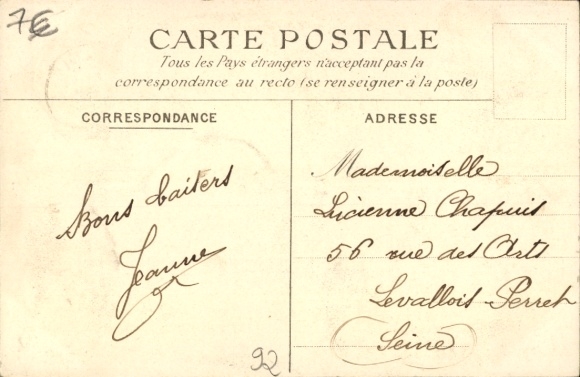 7€
CARTE POSTALE
Tous les Pays étrangers n'acceptant pas la
correspondance au recto (se renseigner à la poste)
CORRESPONDANCE
ADRESSE
Bons baisers
Jeanne
Mademoiselle
Lucienne Chapuis
56 rue des Arts
Levallois-Perret
Seine
92